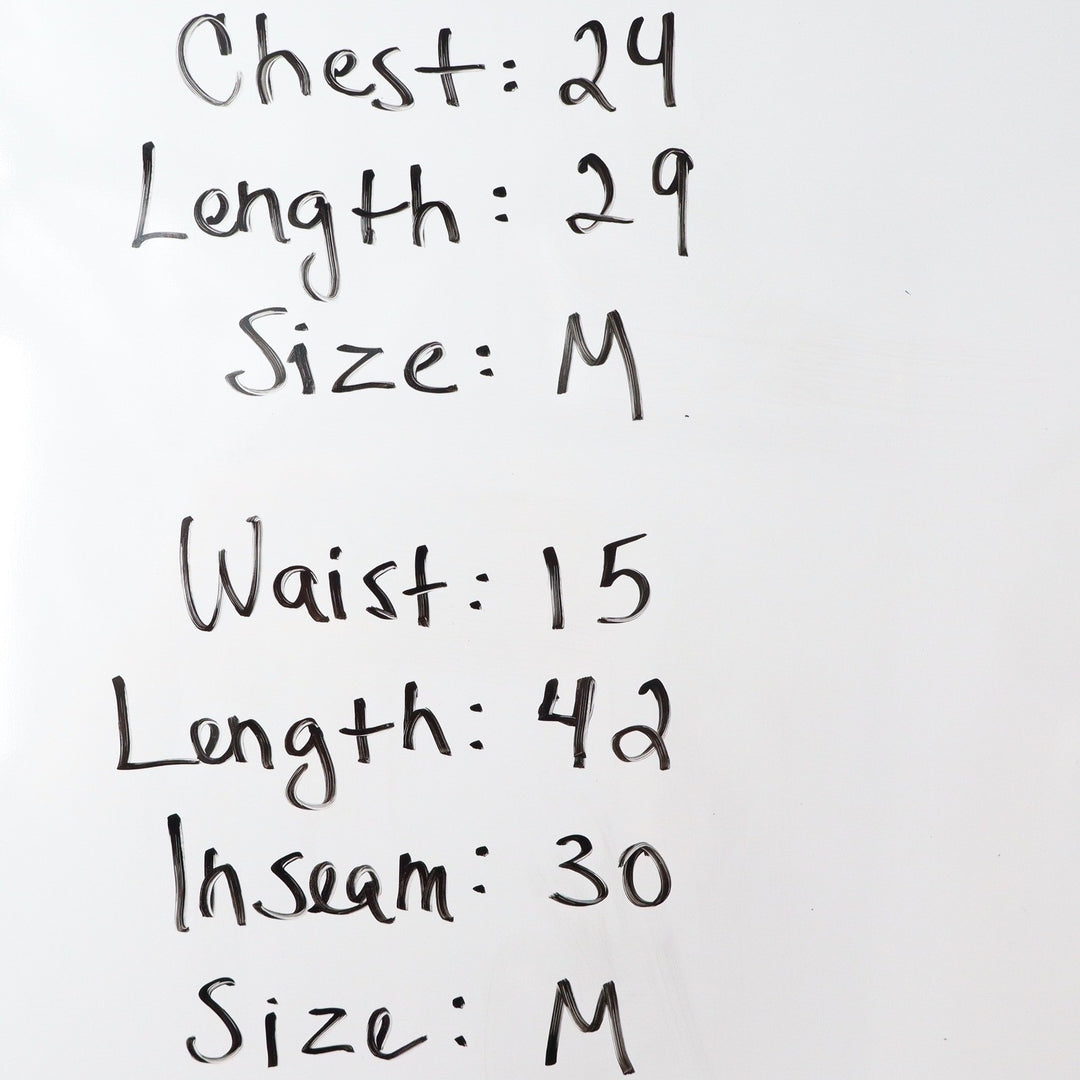 Chest: 24
Length: 29
Size: M
Waist: 15
Length: 42
Inseam: 30
Size: M